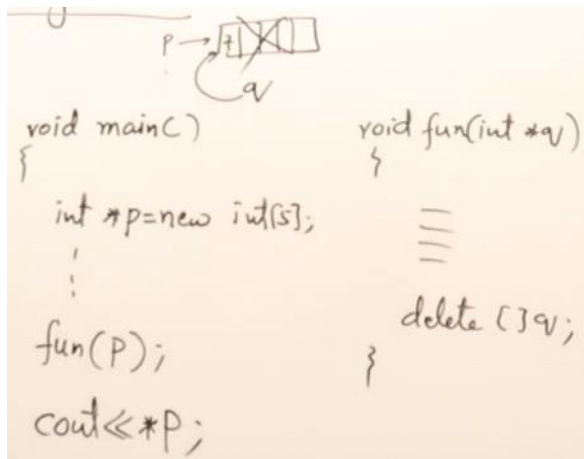 p → 7
q
void main()
{
int *p=new int[5];
fun(p);
cout<<*p;
void fun(int *q)
{
delete []q;
}